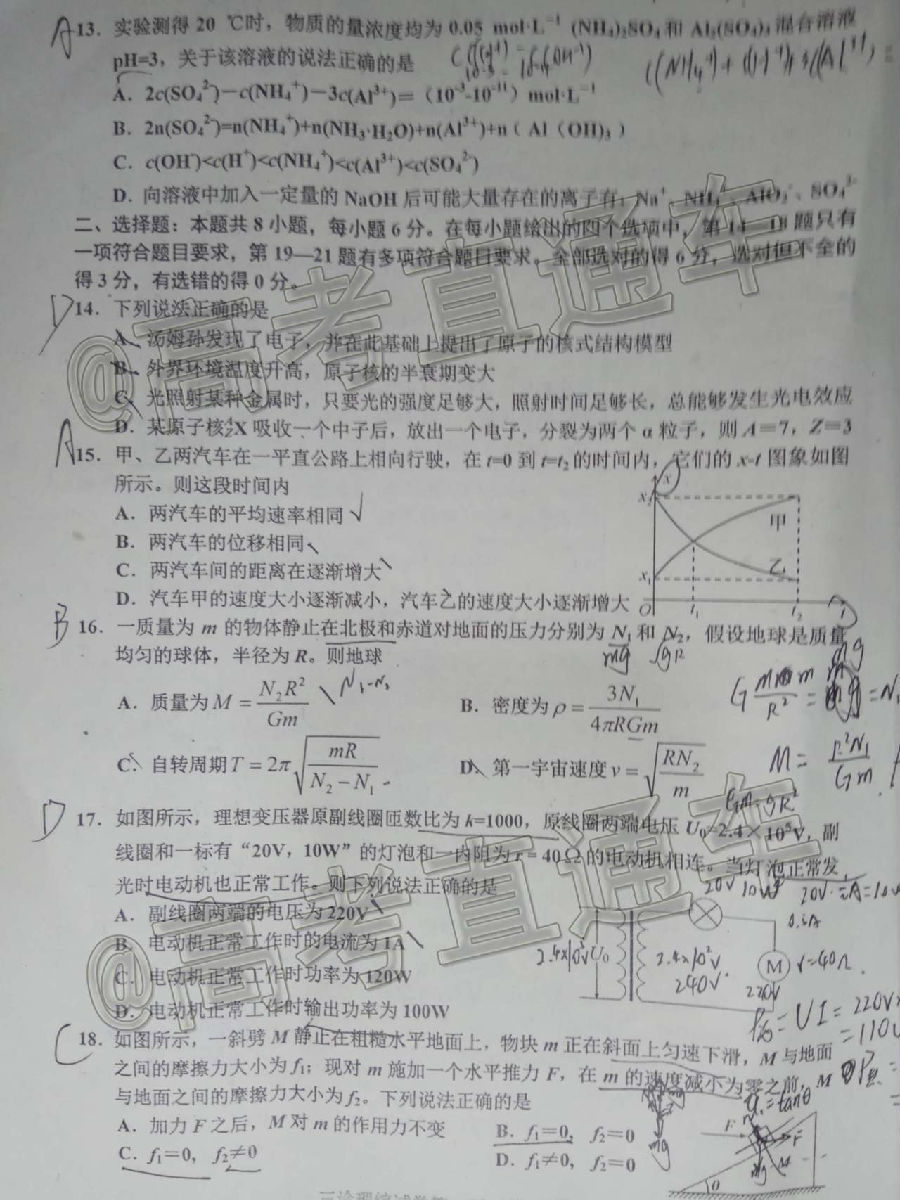 A 13. 实验测得 20 ℃时，物质的量浓度均为 0.05 mol·L⁻¹ (NH₄)₂SO₄ 和 Al₂(SO₄)₃ 混合溶液
pH=3，关于该溶液的说法正确的是
A. 2c(SO₄²⁻)－c(NH₄⁺)－3c(Al³⁺)=（10⁻³-10⁻¹¹）mol·L⁻¹
B. 2n(SO₄²⁻)=n(NH₄⁺)+n(NH₃·H₂O)+n(Al³⁺)+n（Al（OH)₃）
C. c(OH⁻)<c(H⁺)<c(NH₄⁺)<c(Al³⁺)<c(SO₄²⁻)
D. 向溶液中加入一定量的 NaOH 后可能大量存在的离子有：Na⁺、NH₄⁺、AlO₂⁻、SO₄²⁻
二、选择题：本题共 8 小题，每小题 6 分。在每小题给出的四个选项中，第 14—18 题只有
一项符合题目要求，第 19—21 题有多项符合题目要求。全部选对的得 6 分，选对但不全的
得 3 分，有选错的得 0 分。
D 14. 下列说法正确的是
A. 汤姆孙发现了电子，并在此基础上提出了原子的核式结构模型
B. 外界环境温度升高，原子核的半衰期变大
C. 光照射某种金属时，只要光的强度足够大，照射时间足够长，总能够发生光电效应
D. 某原子核 X 吸收一个中子后，放出一个电子，分裂为两个 α 粒子，则 A＝7，Z＝3
A 15. 甲、乙两汽车在一平直公路上相向行驶，在 t=0 到 t=t₂ 的时间内，它们的 x-t 图象如图
所示。则这段时间内
A. 两汽车的平均速率相同 √
B. 两汽车的位移相同
C. 两汽车间的距离在逐渐增大
D. 汽车甲的速度大小逐渐减小，汽车乙的速度大小逐渐增大
x
x₂
甲
乙
x₁
O t₁ t₂ t
B 16. 一质量为 m 的物体静止在北极和赤道对地面的压力分别为 N₁ 和 N₂，假设地球是质量
均匀的球体，半径为 R。则地球
mg
A. 质量为 M = N₂R²/Gm
B. 密度为 ρ = 3N₁/4πRGm
C. 自转周期 T = 2π√(mR/(N₂－N₁))
D. 第一宇宙速度 v = √(RN₂/m)
M = R²N₁/Gm
D 17. 如图所示，理想变压器原副线圈匝数比为 k=1000，原线圈两端电压 U₀=2.4×10⁵V，副
线圈和一标有“20V，10W”的灯泡和一内阻为 r = 40Ω 的电动机相连。当灯泡正常发
光时电动机也正常工作。则下列说法正确的是
A. 副线圈两端的电压为 220V
B. 电动机正常工作时的电流为 1A
C. 电动机正常工作时功率为 120W
D. 电动机正常工作时输出功率为 100W
20V 10W
U₀
240V
M r=40Ω
220V
C 18. 如图所示，一斜劈 M 静止在粗糙水平地面上，物块 m 正在斜面上匀速下滑，M 与地面
之间的摩擦力大小为 f₁；现对 m 施加一个水平推力 F，在 m 的速度减小为零之前，M
与地面之间的摩擦力大小为 f₂。下列说法正确的是
A. 加力 F 之后，M 对 m 的作用力不变
B. f₁=0，f₂=0
C. f₁=0，f₂≠0
D. f₁≠0，f₂=0
F
M
θ
@高考直通车
@高考直通车